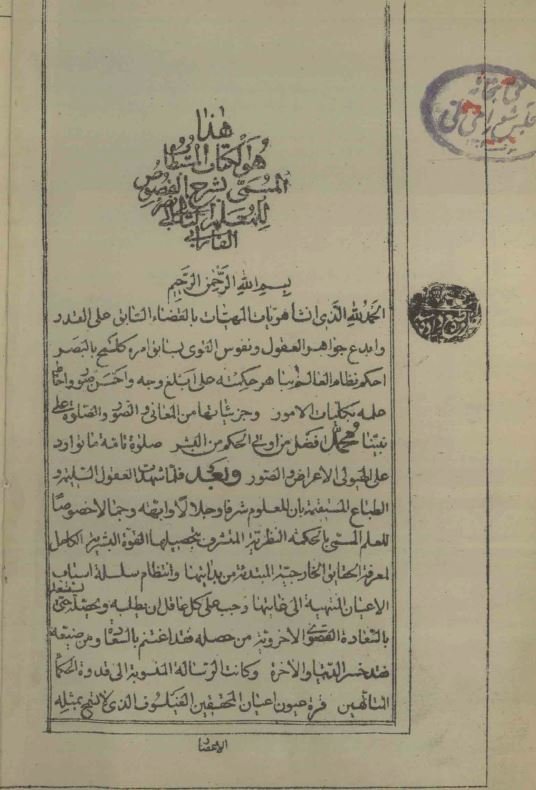 هذا
هو الكتاب المستطاب
المسمى بشرح الفصوص
للمعلم الثاني ابي نصر
الفارابي
بسم الله الرحمن الرحيم
الحمد لله الذى انشأ هويات المهيات بالقضاء السابق على القدر
وابدع جواهر العقول ونفوس القوى بسابق امره كلمح بالبصر
احكم نظام العالم بباهر حكمته على ابلغ وجه واحسن صور واحاط
علمه بكليات الامور وجزئياتها من المعانى والصور والصلوة على
نبينا محمد افضل من اوتى الحكم من البشر صلوة تامة ما توارد
على الهيولى الاعراض والصور وبعد فلما شهدت العقول السليمة و
الطباع المستقيمة بان للعلوم شرفا وجلالا وابهة وجمالا خصوصا
للعلم المسمى بالحكمة النظرية المتشرف بتحصيلها القوة البشرية الكامل
لمعرفة الحقايق الخارجية المبتدئة من بدايتها وانتظام سلسلة اسباب
الاعيان المنتهية الى غايتها وجب على كل عاقل ان يطلبه ويحصله حتى يستعد
بالسعادة القصوى الاخروية من حصله فقد اغتنم بالسعادة ومن ضيعه
فقد خسر الدنيا والاخرة وكانت الرسالة المنسوبة الى قدوة الحكما
المتالهين قرة عيون اعيان المحققين الفيلسوف الذى لا تسمح بمثله
الاعصار